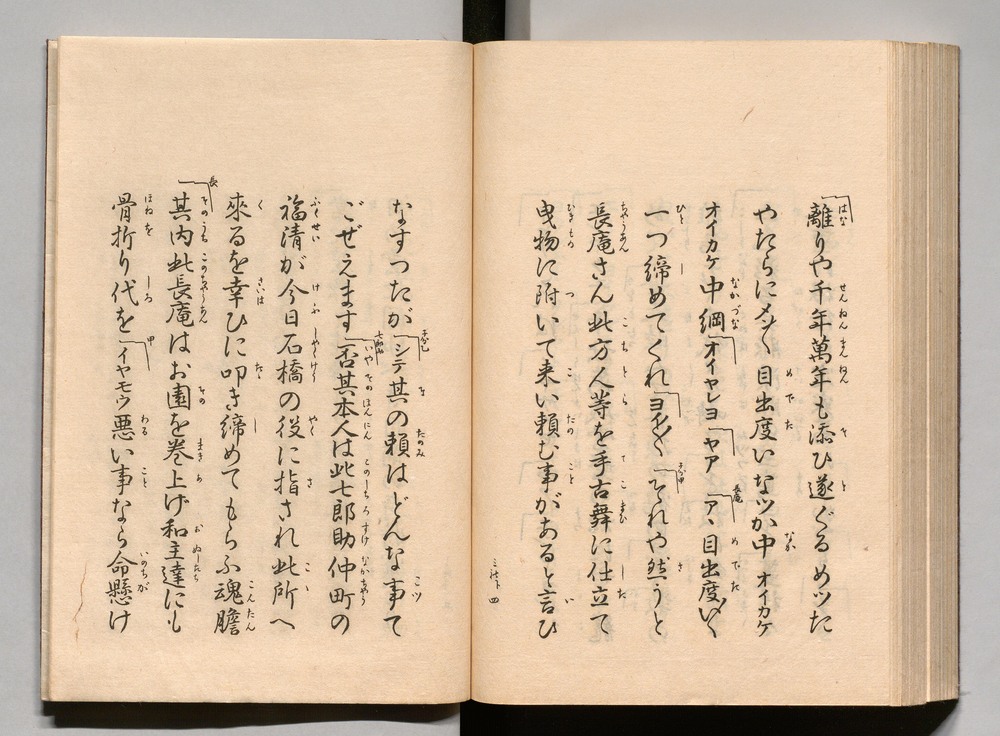 離りや千年萬年も添ひ遂ぐるめツた
やたらにメツ〱目出度いなツか中オイカケ
オイカケ中綱オイヤレヨヤアア丶目出度い〱
一つ締めてくれヨイ〱それや然うと
長庵さん此方人等を手古舞に仕立て
曳物に附いて来い頼む事があると言ひ
なすつたがシテ其の頼はどんな事て
ごぜえます否其本人は此七郎助仲町の
福清が今日石橋の役に指され此所へ
來るを幸ひに叩き締めてもらふ魂膽
其内此長庵はお園を巻上げ和主達にも
骨折り代をイヤモウ悪い事なら命懸け